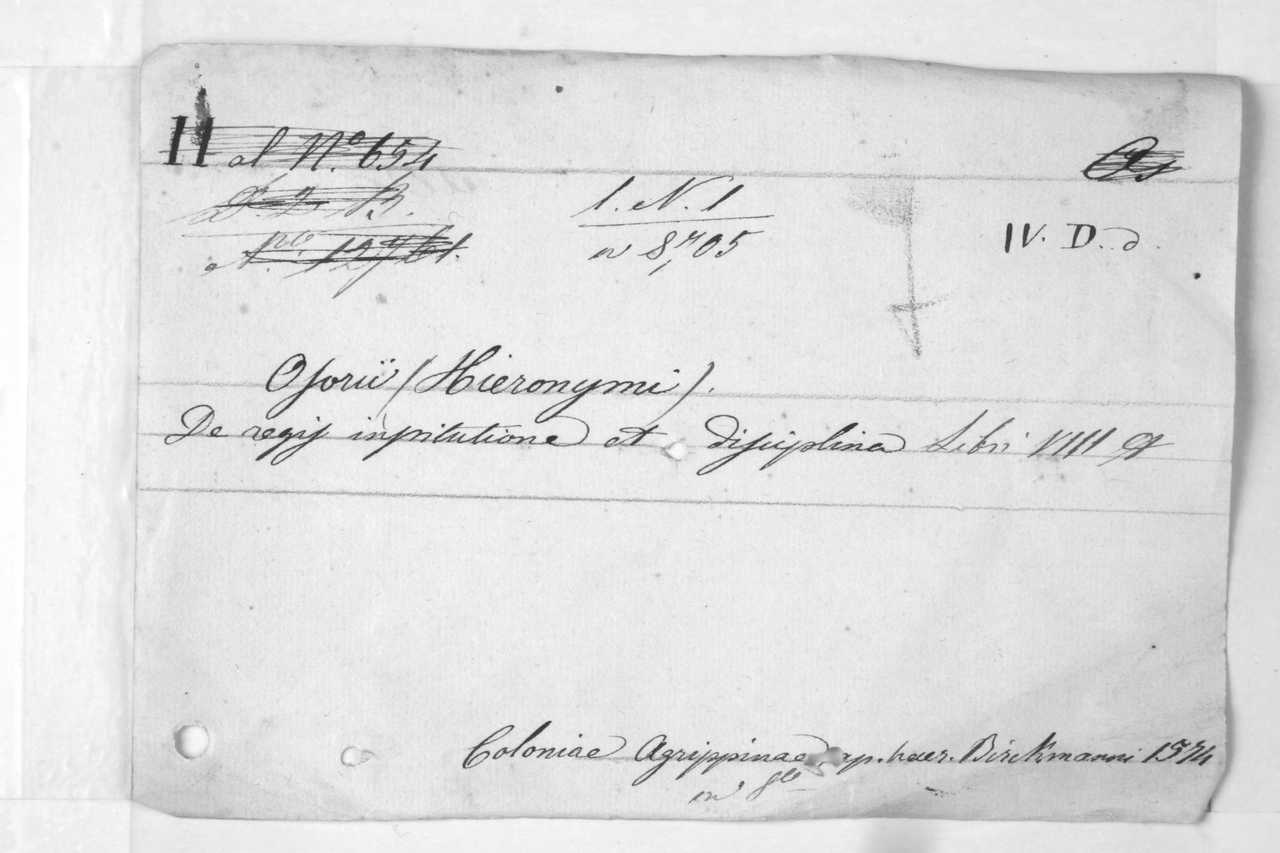 H al Nº 654
1. N. 1
n 8,705
IV. D. d.
Osorii (Hieronymi).
De regis institutione et disciplina Libri VIII &
Coloniae Agrippinae, ap. haer. Birckmanni 1574
in 8vo